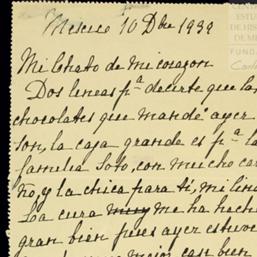 Mexico 10 Dbre 1939
Mi chato de mi corazon
Dos lineas pª decirte que las
chocolates que mandé ayer
son, la caja grande es pª la
familia Soto, con mucho cari
ño, y la chica para ti, mi lind
Loa cura me ha hecho
gran bien pues ayer estuve
mejor casi bien
ESTU
DE HIS
DE M
FUND
Carso